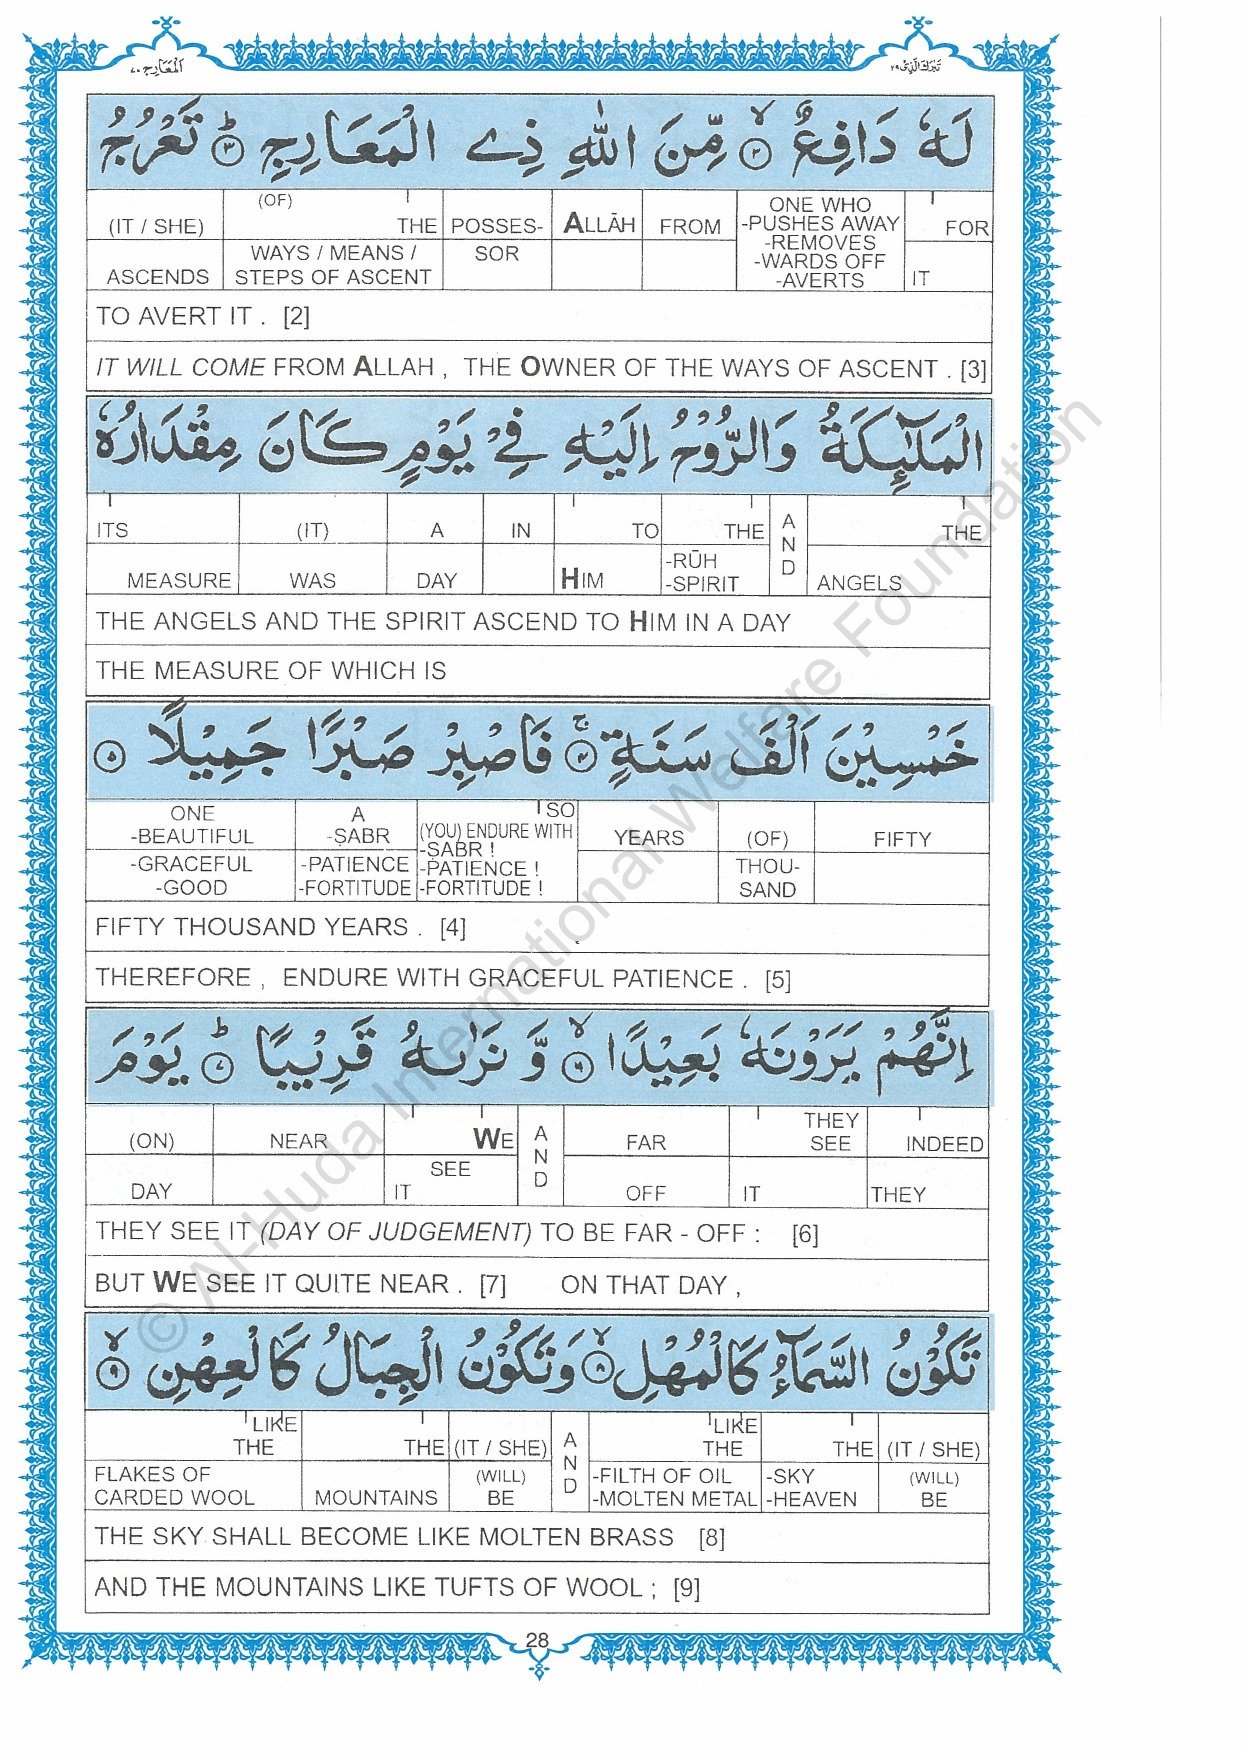 المعارج ٧٠
تبرك الذي ٢٩
لَهٗ دَافِعٌ ۙ ﴿٢﴾ مِّنَ اللّٰهِ ذِي الْمَعَارِجِ ؕ ﴿٣﴾ تَعْرُجُ
(IT / SHE) (OF) THE POSSES- ALLĀH FROM ONE WHO -PUSHES AWAY -REMOVES -WARDS OFF -AVERTS FOR
ASCENDS WAYS / MEANS / STEPS OF ASCENT SOR IT
TO AVERT IT . [2]
IT WILL COME FROM ALLAH , THE OWNER OF THE WAYS OF ASCENT . [3]
الْمَلٰٓئِكَةُ وَالرُّوْحُ اِلَيْهِ فِيْ يَوْمٍ كَانَ مِقْدَارُهٗ
ITS (IT) A IN TO THE AND THE
MEASURE WAS DAY HIM -RŪH -SPIRIT ANGELS
THE ANGELS AND THE SPIRIT ASCEND TO HIM IN A DAY
THE MEASURE OF WHICH IS
خَمْسِيْنَ اَلْفَ سَنَةٍ ۚ ﴿٤﴾ فَاصْبِرْ صَبْرًا جَمِيْلًا ﴿٥﴾
ONE -BEAUTIFUL A -ṢABR SO (YOU) ENDURE WITH -ṢABR ! YEARS (OF) FIFTY
-GRACEFUL -GOOD -PATIENCE -FORTITUDE -PATIENCE ! -FORTITUDE ! THOU- SAND
FIFTY THOUSAND YEARS . [4]
THEREFORE , ENDURE WITH GRACEFUL PATIENCE . [5]
اِنَّهُمْ يَرَوْنَهٗ بَعِيْدًا ۙ ﴿٦﴾ وَّ نَرٰىهُ قَرِيْبًا ؕ ﴿٧﴾ يَوْمَ
(ON) NEAR WE AND FAR THEY SEE INDEED
DAY SEE IT OFF IT THEY
THEY SEE IT (DAY OF JUDGEMENT) TO BE FAR - OFF : [6]
BUT WE SEE IT QUITE NEAR . [7] ON THAT DAY ,
تَكُوْنُ السَّمَآءُ كَالْمُهْلِ ۙ ﴿٨﴾ وَتَكُوْنُ الْجِبَالُ كَالْعِهْنِ ۙ ﴿٩﴾
LIKE THE THE (IT / SHE) AND LIKE THE THE (IT / SHE)
FLAKES OF CARDED WOOL MOUNTAINS (WILL) BE -FILTH OF OIL -MOLTEN METAL -SKY -HEAVEN (WILL) BE
THE SKY SHALL BECOME LIKE MOLTEN BRASS [8]
AND THE MOUNTAINS LIKE TUFTS OF WOOL ; [9]
28
© Al-Huda International Welfare Foundation